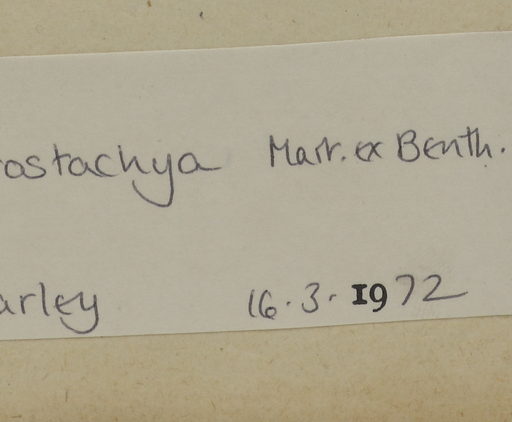 ostachya Mart. ex Benth.
arley 16.3.1972